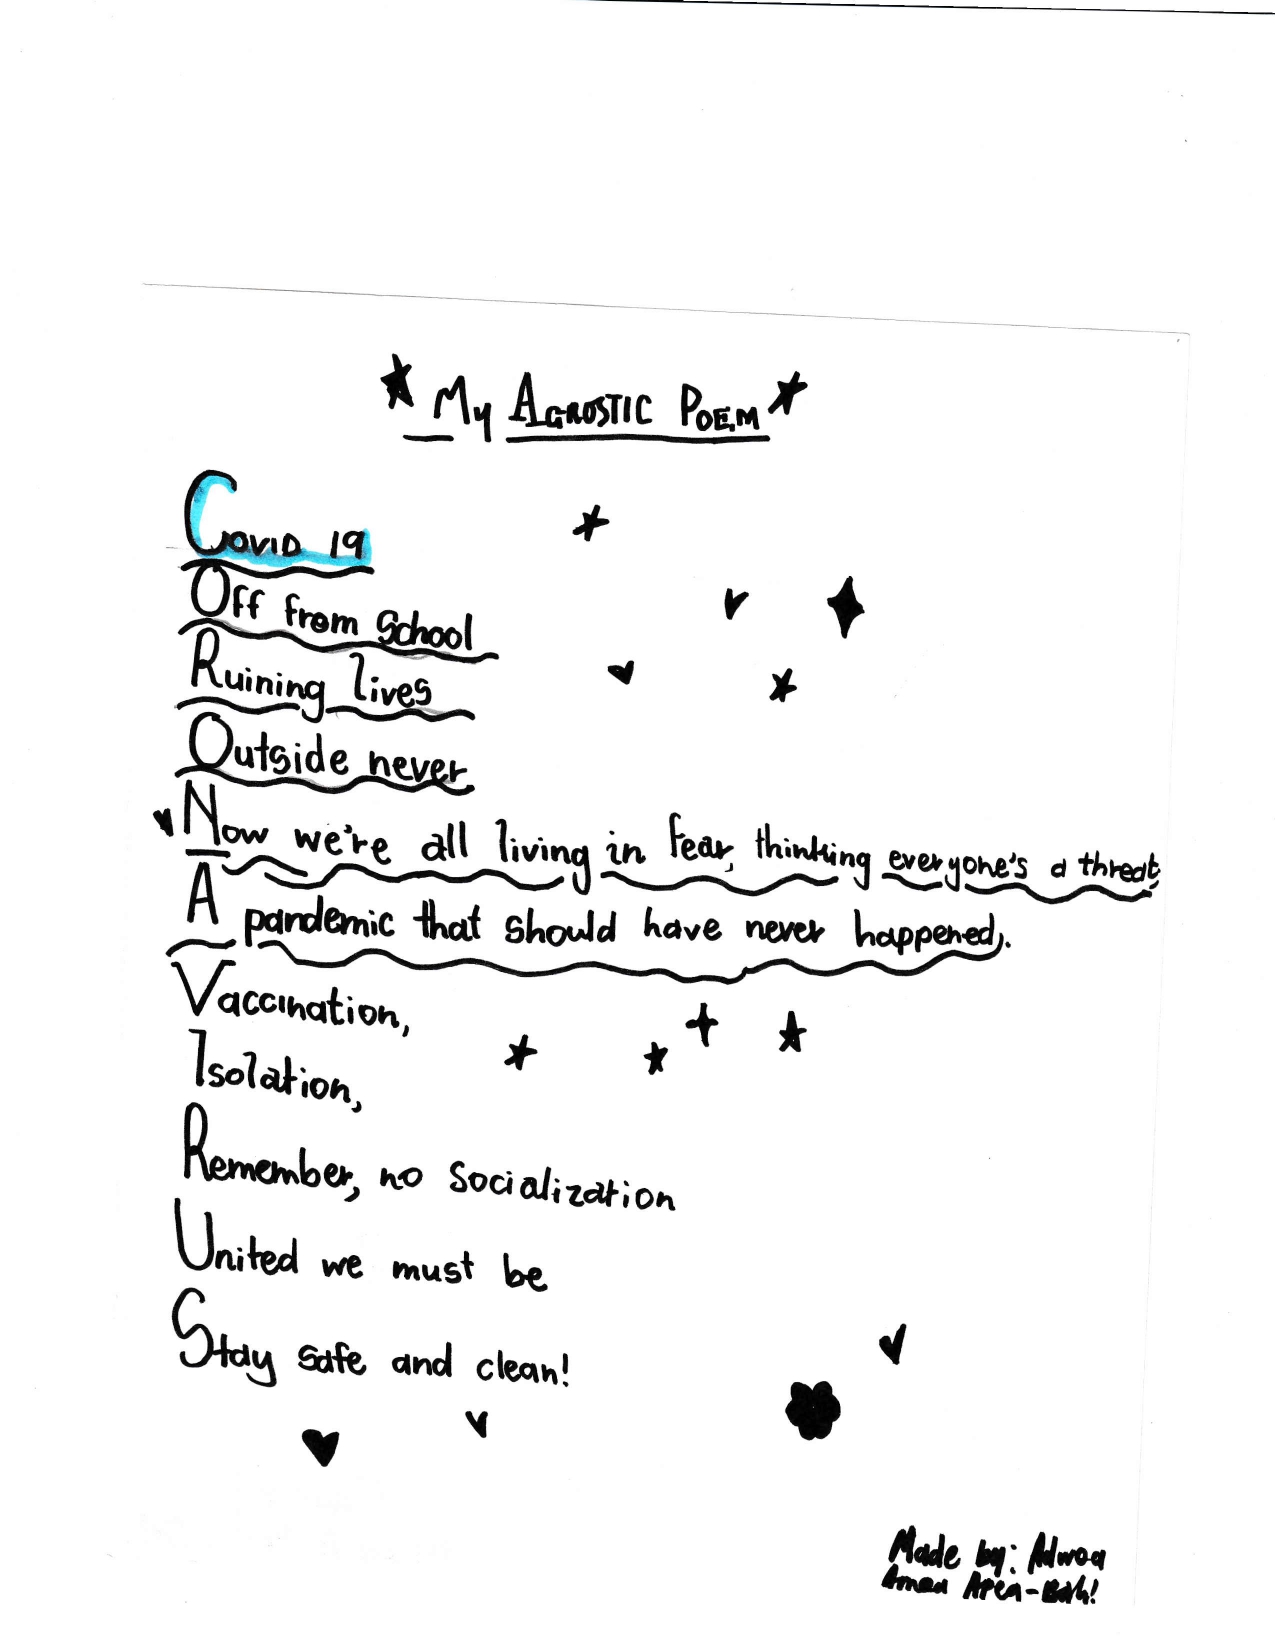 My AGROSTIC POEM
COVID 19
Off from School
Ruining lives
Outside never
Now we're all living in fear, thinking everyone's a threat,
A pandemic that should have never happened.
Vaccination,
Isolation,
Remember, no socialization
United we must be
Stay safe and clean!
Made by: Adwoa
Apea-Bah!